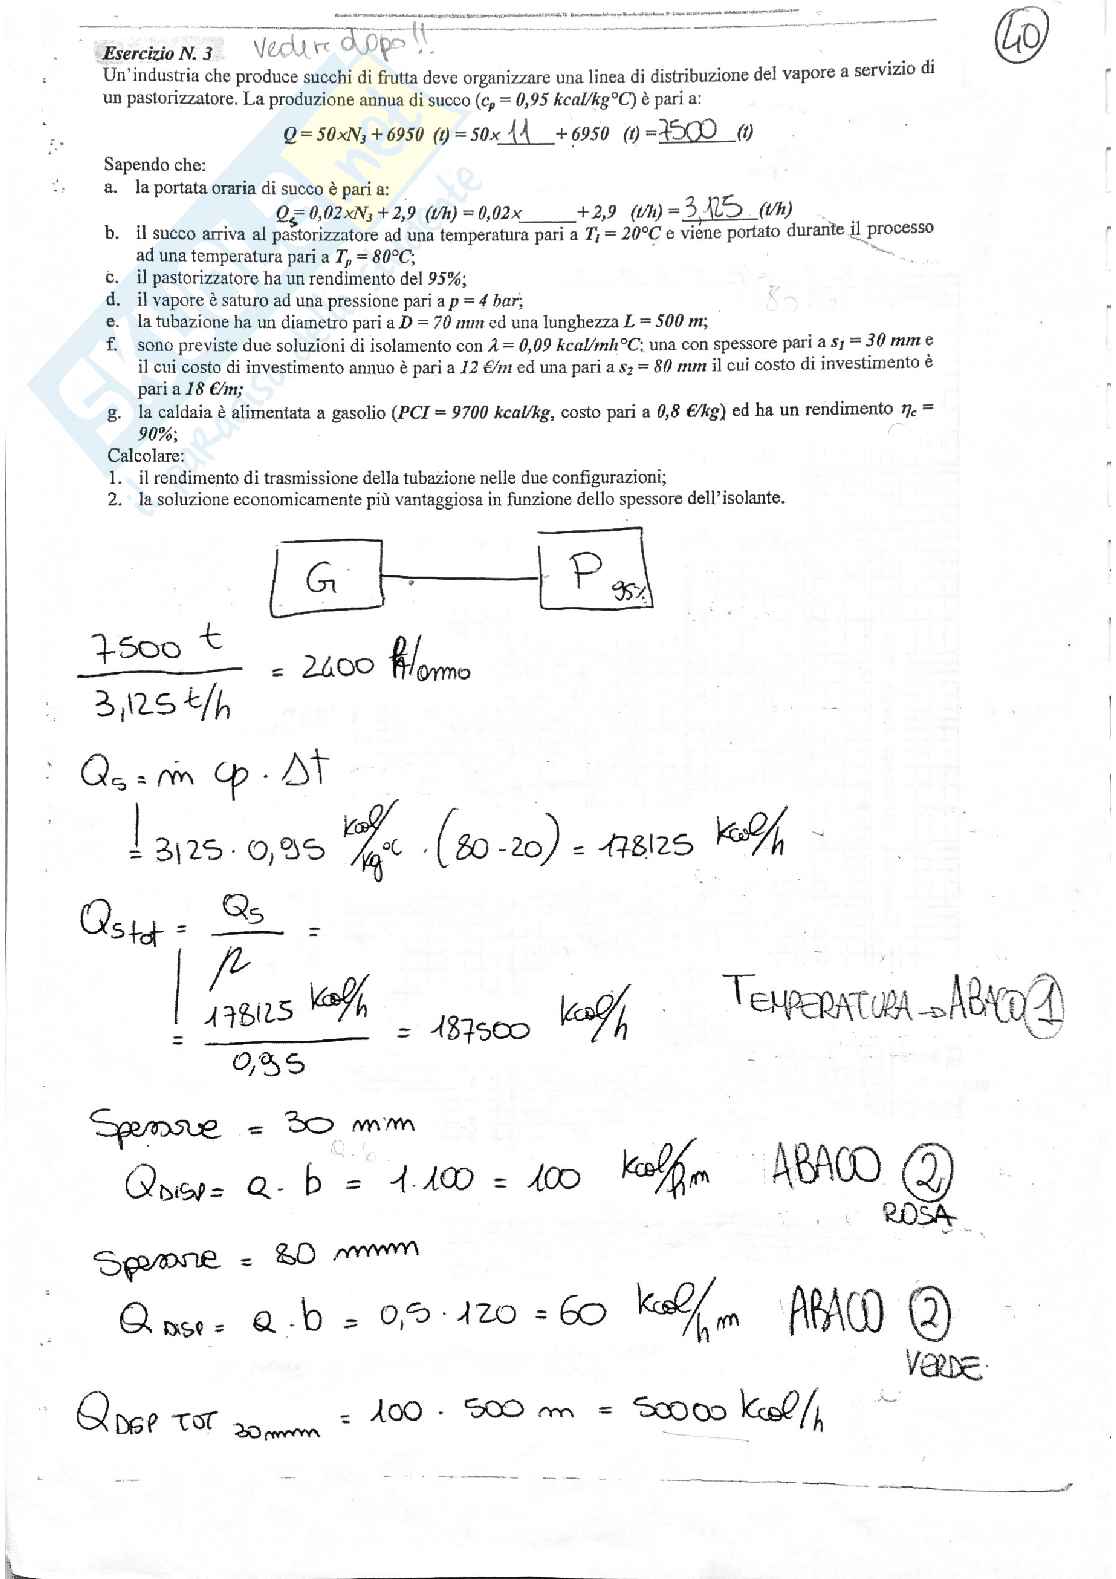 40
Esercizio N. 3 vedere dopo!!
Un'industria che produce succhi di frutta deve organizzare una linea di distribuzione del vapore a servizio di
un pastorizzatore. La produzione annua di succo (cp = 0,95 kcal/kg°C) è pari a:
Q = 50xN3 + 6950 (t) = 50x 11 + 6950 (t) = 7500 (t)
Sapendo che:
a. la portata oraria di succo è pari a:
Qs = 0,02xN3 + 2,9 (t/h) = 0,02x____+2,9 (t/h) = 3,125 (t/h)
b. il succo arriva al pastorizzatore ad una temperatura pari a Ti = 20°C e viene portato durante il processo
ad una temperatura pari a Tp = 80°C;
c. il pastorizzatore ha un rendimento del 95%;
d. il vapore è saturo ad una pressione pari a p = 4 bar;
e. la tubazione ha un diametro pari a D = 70 mm ed una lunghezza L = 500 m;
f. sono previste due soluzioni di isolamento con λ = 0,09 kcal/mh°C: una con spessore pari a s1 = 30 mm e
il cui costo di investimento annuo è pari a 12 €/m ed una pari a s2 = 80 mm il cui costo di investimento è
pari a 18 €/m;
g. la caldaia è alimentata a gasolio (PCI = 9700 kcal/kg, costo pari a 0,8 €/kg) ed ha un rendimento ηc =
90%;
Calcolare:
1. il rendimento di trasmissione della tubazione nelle due configurazioni;
2. la soluzione economicamente più vantaggiosa in funzione dello spessore dell'isolante.
G P 95%
7500 t / 3,125 t/h = 2400 h/anno
Qs = ṁ cp · Δt
= 3125 · 0,95 kcal/kg°C · (80-20) = 178125 kcal/h
Qs tot = Qs / η =
= 178125 kcal/h / 0,95 = 187500 kcal/h TEMPERATURA → ABACO 1
Spessore = 30 mm
QDISP = a · b = 1 · 100 = 100 kcal/h m ABACO 2
ROSA
Spessore = 80 mm
QDISP = a · b = 0,5 · 120 = 60 kcal/h m ABACO 2
VERDE
QDISP TOT 30mm = 100 · 500 m = 50000 kcal/h